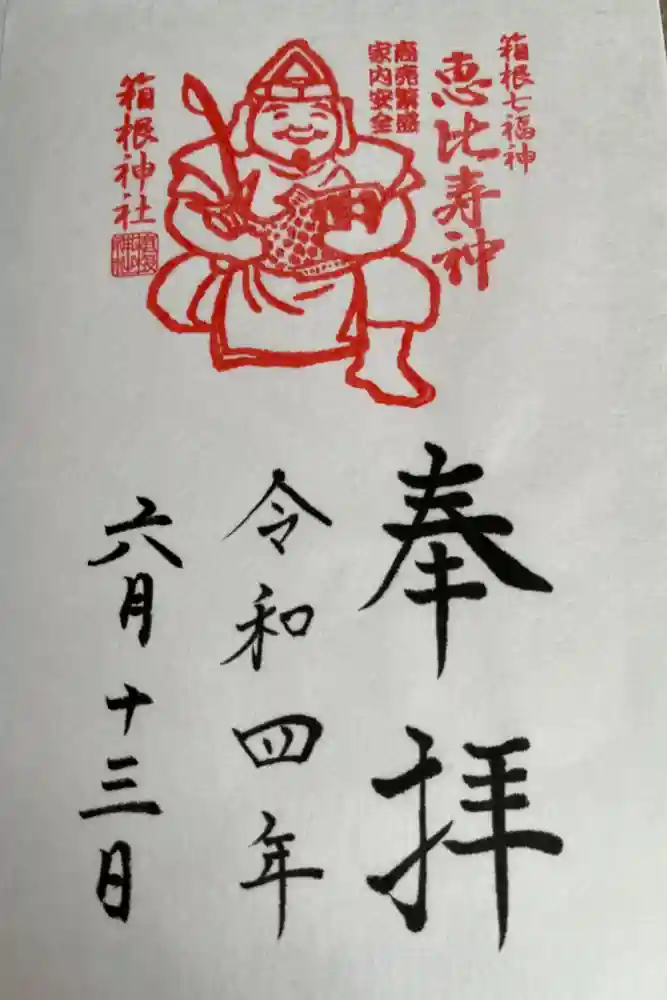 箱根七福神
恵比寿神
商売繁盛
家内安全
箱根神社
奉拝
令和四年
六月十三日